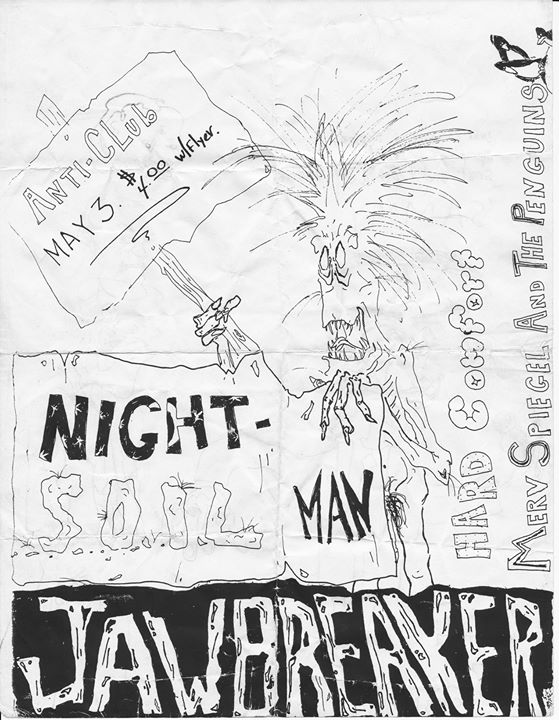 ANTI-CLUB
MAY 3. $4.00 w/Flyer.
NIGHT-
S.O.I.L
MAN
HARD COMFORT
MERV SPIEGEL AND THE PENGUINS
JAWBREAKER